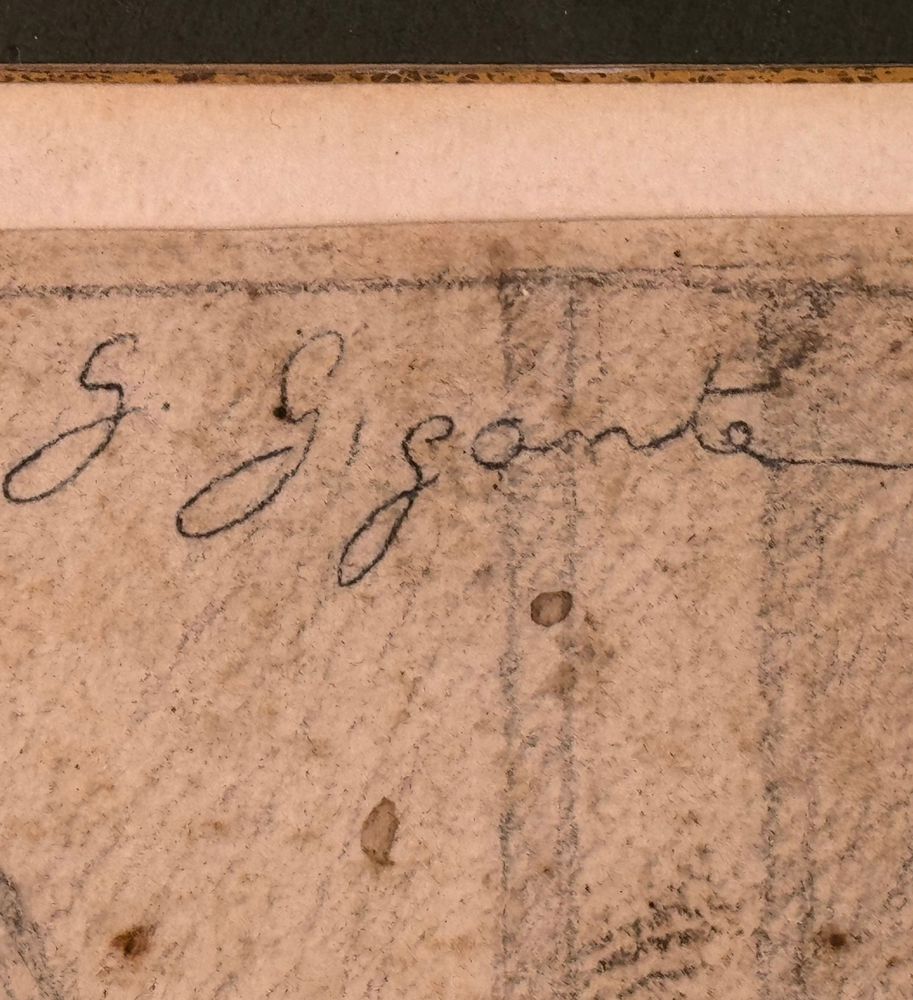 G. Gigante